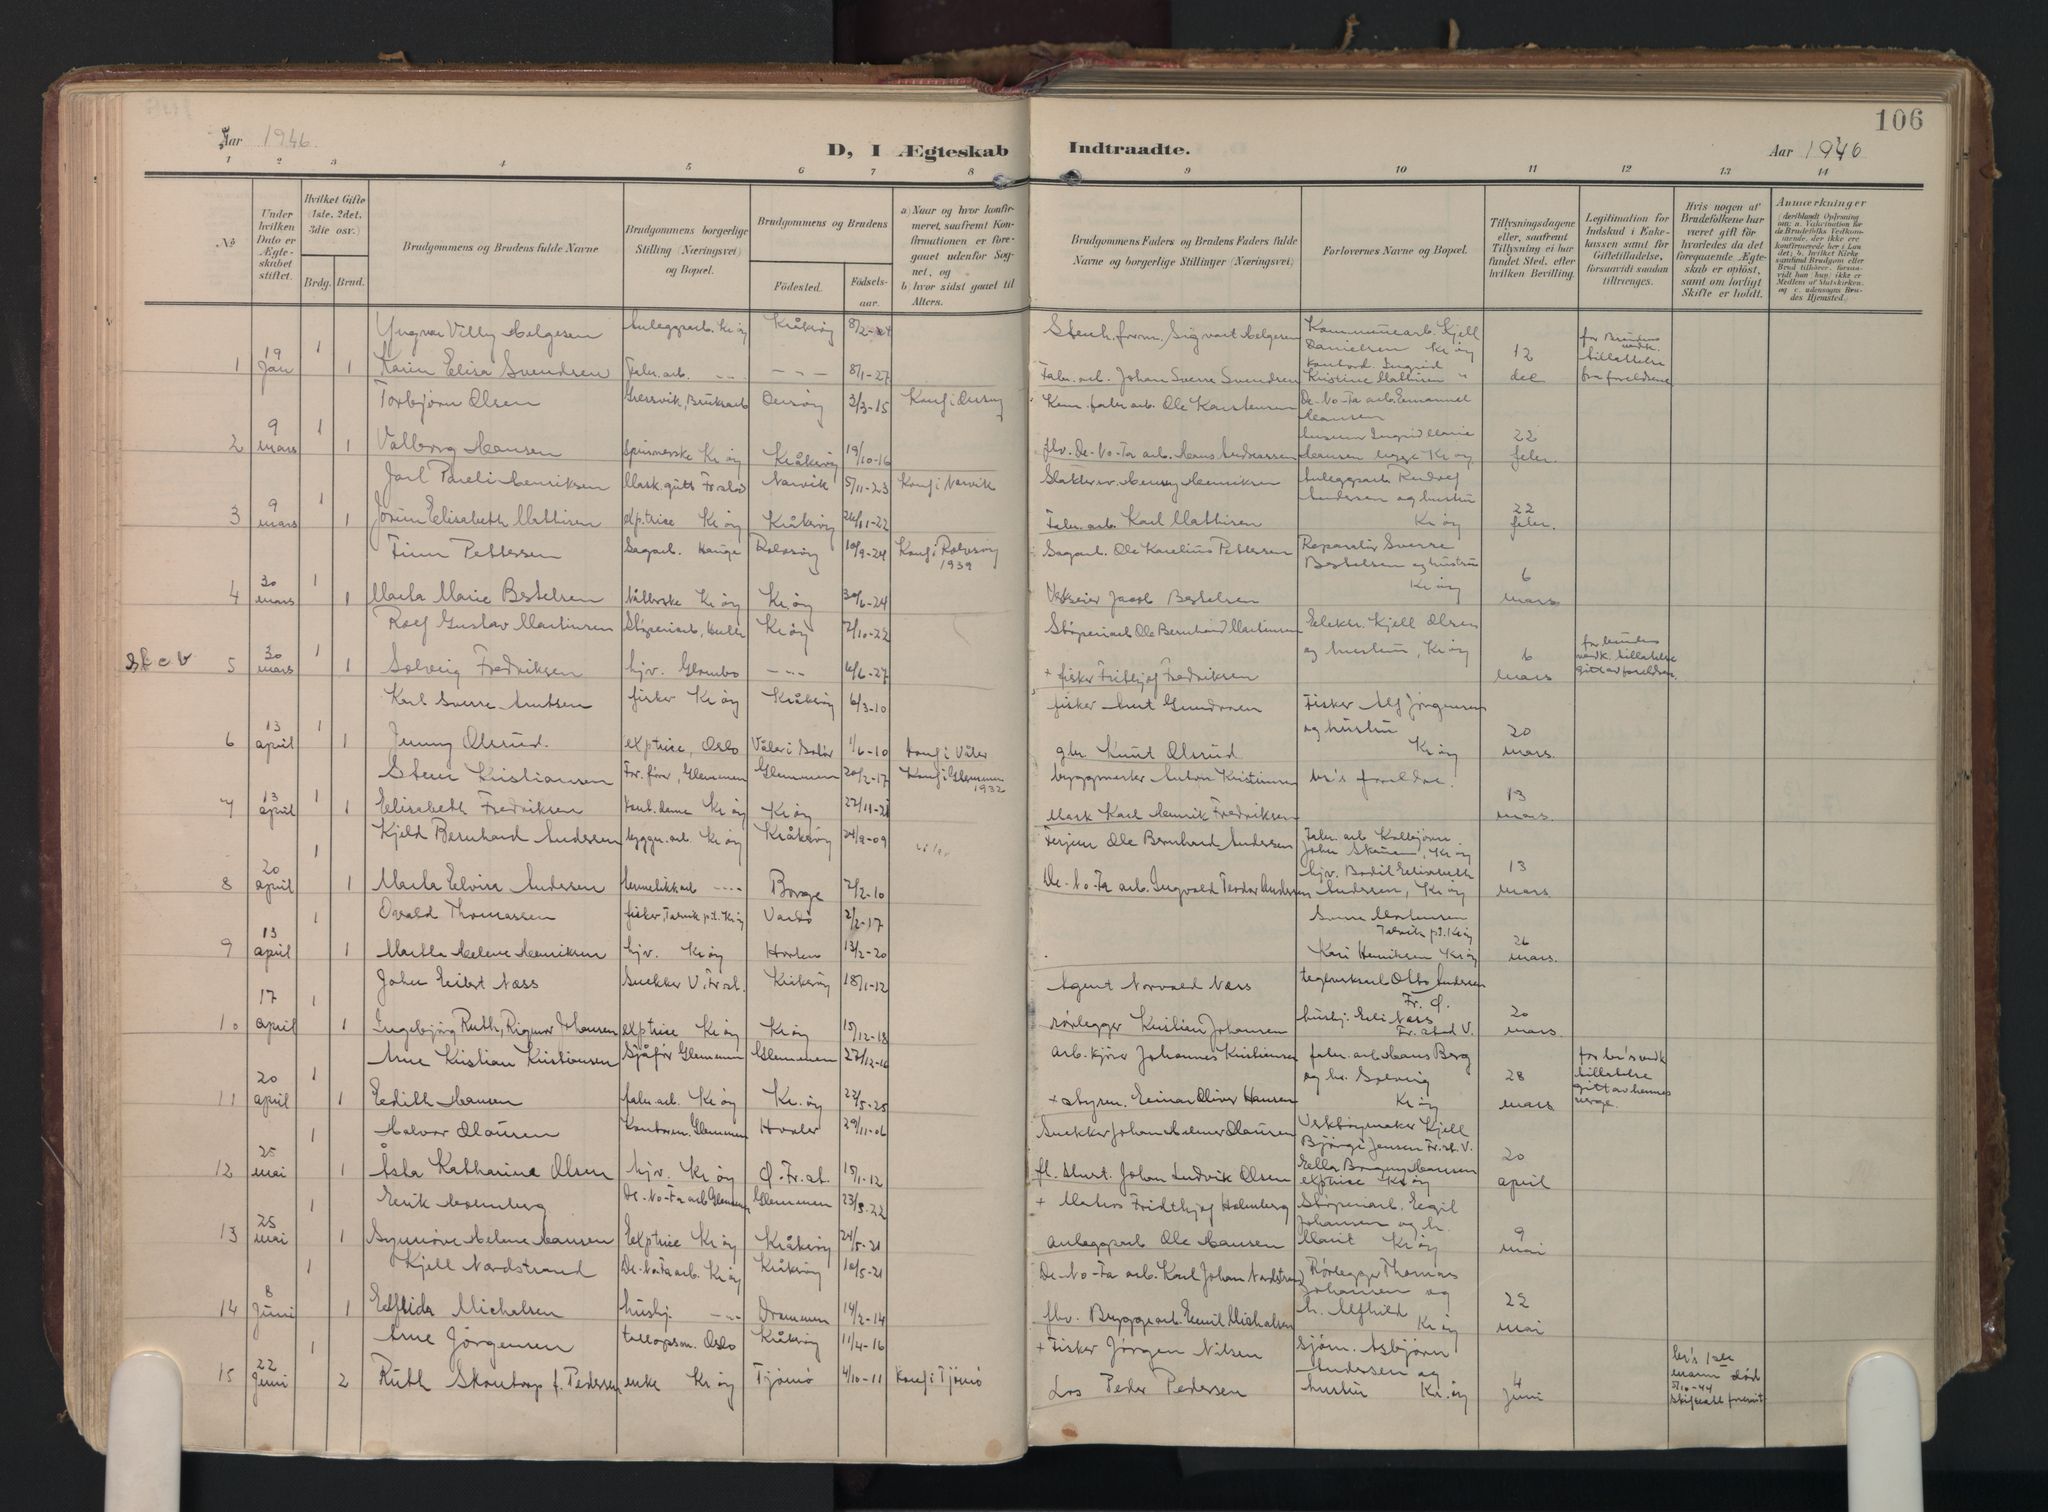 106
Aar 1946.
D, I Ægteskab Indtraadte.
Aar 1946
1 2 3 4 5 6 7 8 9 10 11 12 13 14
No
Under hvilken Dato er Ægteskabet stiftet.
Hvilket Gifte (1ste. 2det. 3die osv.).
Brdg. Brud.
Brudgommens og Brudens fulde Navne
Brudgommens borgerlige Stilling (Næringsvei) og Bopæl.
Brudgommens og Brudens
Fødested.
Fødselsaar.
a) Naar og hvor konfirmeret, saafremt Konfirmationen er foregaaet udenfor Sognet, og
b) hvor sidst gaaet til Alters.
Brudgommens Faders og Brudens Faders fulde Navne og borgerlige Stillinger (Næringsvei)
Forlovernes Navne og Bopæl.
Tillysningsdagene eller, saafremt Tillysning ei har fundet Sted, efter hvilken Bevilling.
Legitimation for Indskud i Enkekassen samt for Giftetilladelse, forsaavidt saadan tiltrænges.
Hvis nogen af Brudefolkene har været gift før hvorledes da det foregaaende Ægteskab er opløst, samt om lovligt Skifte er holdt.
Anmærkninger
Yngvar Villy Helgesen Anleggsarb. Kr.øy Kråkerøy 8/2-24 Sigvart Helgesen Kommunearb. Kjell Danielsen Kr.øy
1 19 Jan 1 1 Karin Elisa Svendsen Fabr.arb. -"- -"- 8/1-27 Fabr.arb. Johan Sverre Svendsen Ingrid Kristine Mathisen " 12 des for Brudens vedk. tillatelse fra foreldrene
Torbjørn Olsen Gressvik, Bruksarb. Onsøy 3/3-15 Konf i Onsøy Kem. fabr.arb. Ole Karstensen De-No-Fa arb. Emanuel Hansen
2 9 mars 1 1 Valborg Hansen Spinnerske Kr.øy Kråkerøy 19/10-16 fhv. De-No-Fa arb. Hans Andreassen Ingrid Marie Hansen begge Kr.øy 22 febr.
Jarl Pareli Henriksen Mask.gutt Fr.stad Narvik 5/11-23 Konf i Narvik Henry Henriksen Anleggsarb. Rudolf Andersen og hustru
3 9 mars 1 1 Jorun Elisabeth Mathisen exptrise Kr.øy Kråkerøy 26/11-22 Fabr.arb. Karl Mathisen Kr.øy 22 febr.
Finn Pettersen Sagarb. Hauge Rolvsøy 10/9-24 Konf i Rolvsøy 1939 Sagarb. Ole Karelius Pettersen Reparatør Sverre Bertelsen og hustru
4 30 mars 1 1 Marta Marie Bertelsen Kr.øy Kr.øy 30/6-24 Jacob Bertelsen Kr.øy 6 mars
Rolf Gustav Martinsen Støperiarb. Kr.øy 2/10-22 Støperiarb. Ole Bernhard Martinsen Elektr. Kjell Olsen
5 30 mars 1 1 Solveig Fredriksen hjv. Glombo -"- 6/6-27 + fisker Fridtjof Fredriksen og hustru, Kr.øy 6 mars for brudens vedk. tillatelse gitt av foreldren.
Karl Sverre Knutsen fisker Kr.øy Kråkerøy 6/3-10 fisker Knut Fisker Alf Jørgensen og hustru
6 13 april 1 1 Jenny Olsrud. exptrise, Oslo Våler i Solør 1/6-10 Konf i Våler gbr. Knut Olsrud Kr.øy 20 mars.
Sten Kristiansen Glemmen Glemmen 20/2-17 Konf i Glemmen 1932 byggmester Anton Kristiansen br's foreldre.
7 13 april 1 1 Elisabeth Fredriksen Kont.dame Kr.øy Kr.øy 22/11-21 Mask. Karl Henrik Fredriksen 13 mars.
Kjeld Bernhard Andersen byggn.arb. Kr.øy Kråkerøy 24/9-09 Ole Bernhard Andersen Fabr.arb Kolbjørn Johan Kr.øy
8 20 april 1 1 Marta Elvira Andersen hermetikkarb -"- Borge 2/2-10 De-No-Fa arb. Ingvald Teodor Andersen hjv. Bodil Elisabeth Andersen, Kr.øy 13 mars.
Osvald Thomassen fisker, p.t. Kr.øy Vardø 2/2-17 p.t. Kr.øy
9 13 april 1 1 Martha Helene Henriksen hjv. Kr.øy Hvaler 13/2-20 Kari Henriksen Kr.øy 26 mars.
John Eilert Næss Snekker V. Fr.st. Kråkerøy 18/1-12 Agent Norvald Næss teglverksarb Otto Andersen Fr. Ø.
10 17 april 1 1 Ingebjørg Ruth, Rigmor Johansen exptrise Kr.øy Kr.øy 15/12-18 rørlegger Kristian Johansen hustj. Elli Næss Fr.stad V. 20 mars.
Arne Kristian Kristiansen Sjåfør Glemmen Glemmen 27/12-16 Arb.kjører Johannes Kristiansen fabr.arb Hans Berg og h. Solveig
11 20 april 1 1 Edith Hansen fabr.arb. Kr.øy Kr.øy 22/5-25 + styrm. Einar Oliver Hansen Kr.øy 28 mars for br's vedk tillatelse gitt av hennes verge.
Halvor Olausen Glemmen Hvaler 29/11-06 Snekker Johan Helmer Olausen Verktøymaker Kjell Bjørge Jensen Fr.st. V.
12 25 mai 1 1 Åsta Katharina Olsen hjv. Kr.øy Ø. Fr.st. 15/1-12 Johan Ludvik Olsen Ella Borgny Hansen exptrise Kr.øy 20 april
Erik Holmberg De-No-Fa arb Glemmen Glemmen 23/8-22 + Matros Fridthjof Holmberg Støperiarb. Egil Johansen og h.
13 25 mai 1 1 Synnøve Helene Hansen Exptrise Kr.øy Kråkerøy 24/5-21 anleggsarb Ole Hansen Marit Kr.øy 9 mai
Kjell Nordstrand De-No-Fa arb. Kr.øy Kråkerøy 10/5-21 De-No-Fa arb. Karl Johan Nordstrand Rørlegger Thomas Johansen og
14 8 Juni 1 1 Elfrida Michalsen hushj. -"- Drammen 14/2-14 fhv. Bryggearb. Emil Michalsen h. Alfhild Kr.øy 22 mai
Arne Jørgensen tollopsm. Oslo Kråkerøy 11/4-16 + Fisker Jørgen Nilsen sjøm. Asbjørn Andersen og
15 22 Juni 1 2 Ruth Skontorp f. Pedersen enke Kr.øy Tjømø 4/10-11 Konf i Tjømø Los Peder Pedersen hustru Kr.øy 4 Juni br's 1ste mann død 5/10-44 skifteatt forevist